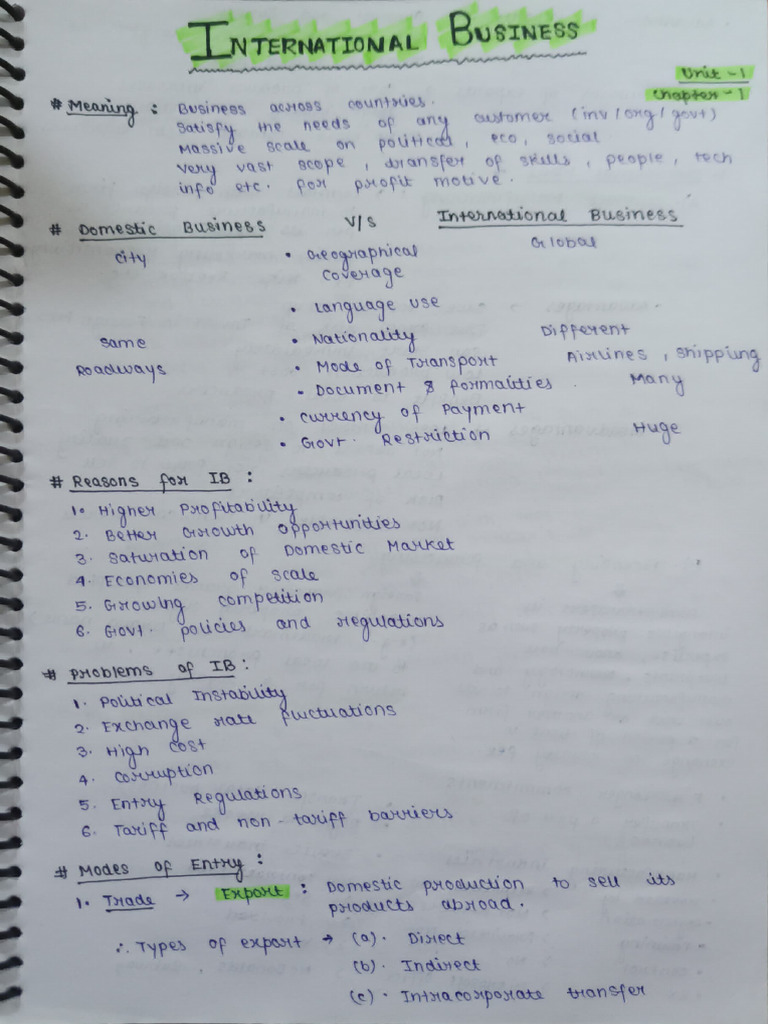 INTERNATIONAL BUSINESS
Unit - 1
Chapter - 1
# Meaning : Business across countries.
Satisfy the needs of any customer (inv / org / govt)
Massive scale on political, eco, social
Very vast scope, transfer of skills, people, tech
info etc. for profit motive.
# Domestic Business V/S International Business
City • Geographical Coverage Global
• Language use
Same • Nationality Different
Roadways • Mode of Transport Airlines, Shipping
• Document & formalities. Many
• Currency of Payment
• Govt. Restriction Huge
# Reasons for IB :
1. Higher Profitability
2. Better Growth opportunities
3. Saturation of Domestic Market
4. Economies of scale
5. Growing competition
6. Govt. policies and regulations
# Problems of IB :
1. Political Instability
2. Exchange rate fluctuations
3. High cost
4. Corruption
5. Entry Regulations
6. Tariff and non-tariff barriers
# Modes of Entry :
1. Trade → Export : Domestic production to sell its
products abroad.
∴ Types of export → (a). Direct
(b). Indirect
(c). Intracorporate transfer